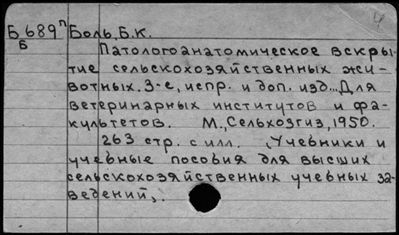 4
Б689п Боль, Б.К.
Б
Патологоанатомическое вскры-
тие сельскохозяйственных жи-
вотных. 3-е, испр. и доп. изд... Для
ветеринарных институтов и фа-
культетов. М., Сельхозгиз, 1950.
263 стр. с илл. (Учебники и
учебные пособия для высших
сельскохозяйственных учебных за-
ведений).